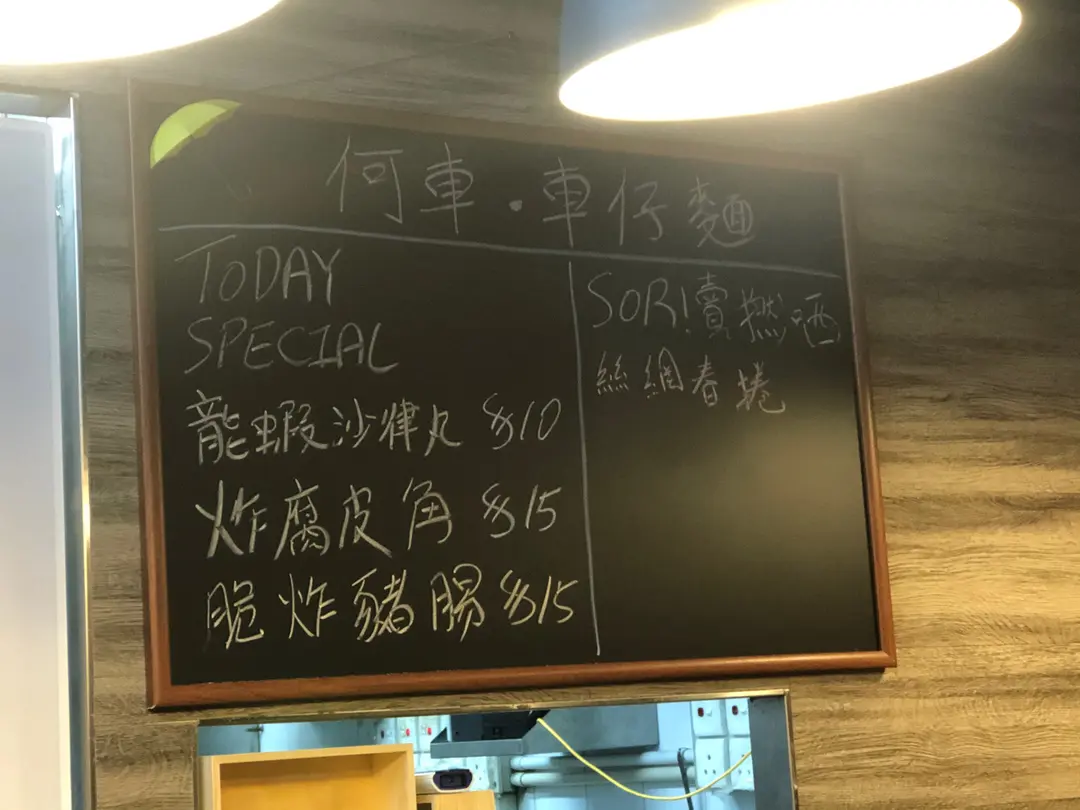 何車．車仔麵
TODAY
SPECIAL
龍蝦沙律丸 $10
炸腐皮角 $15
脆炸豬腸 $15
SOR!賣撚哂
絲網春捲